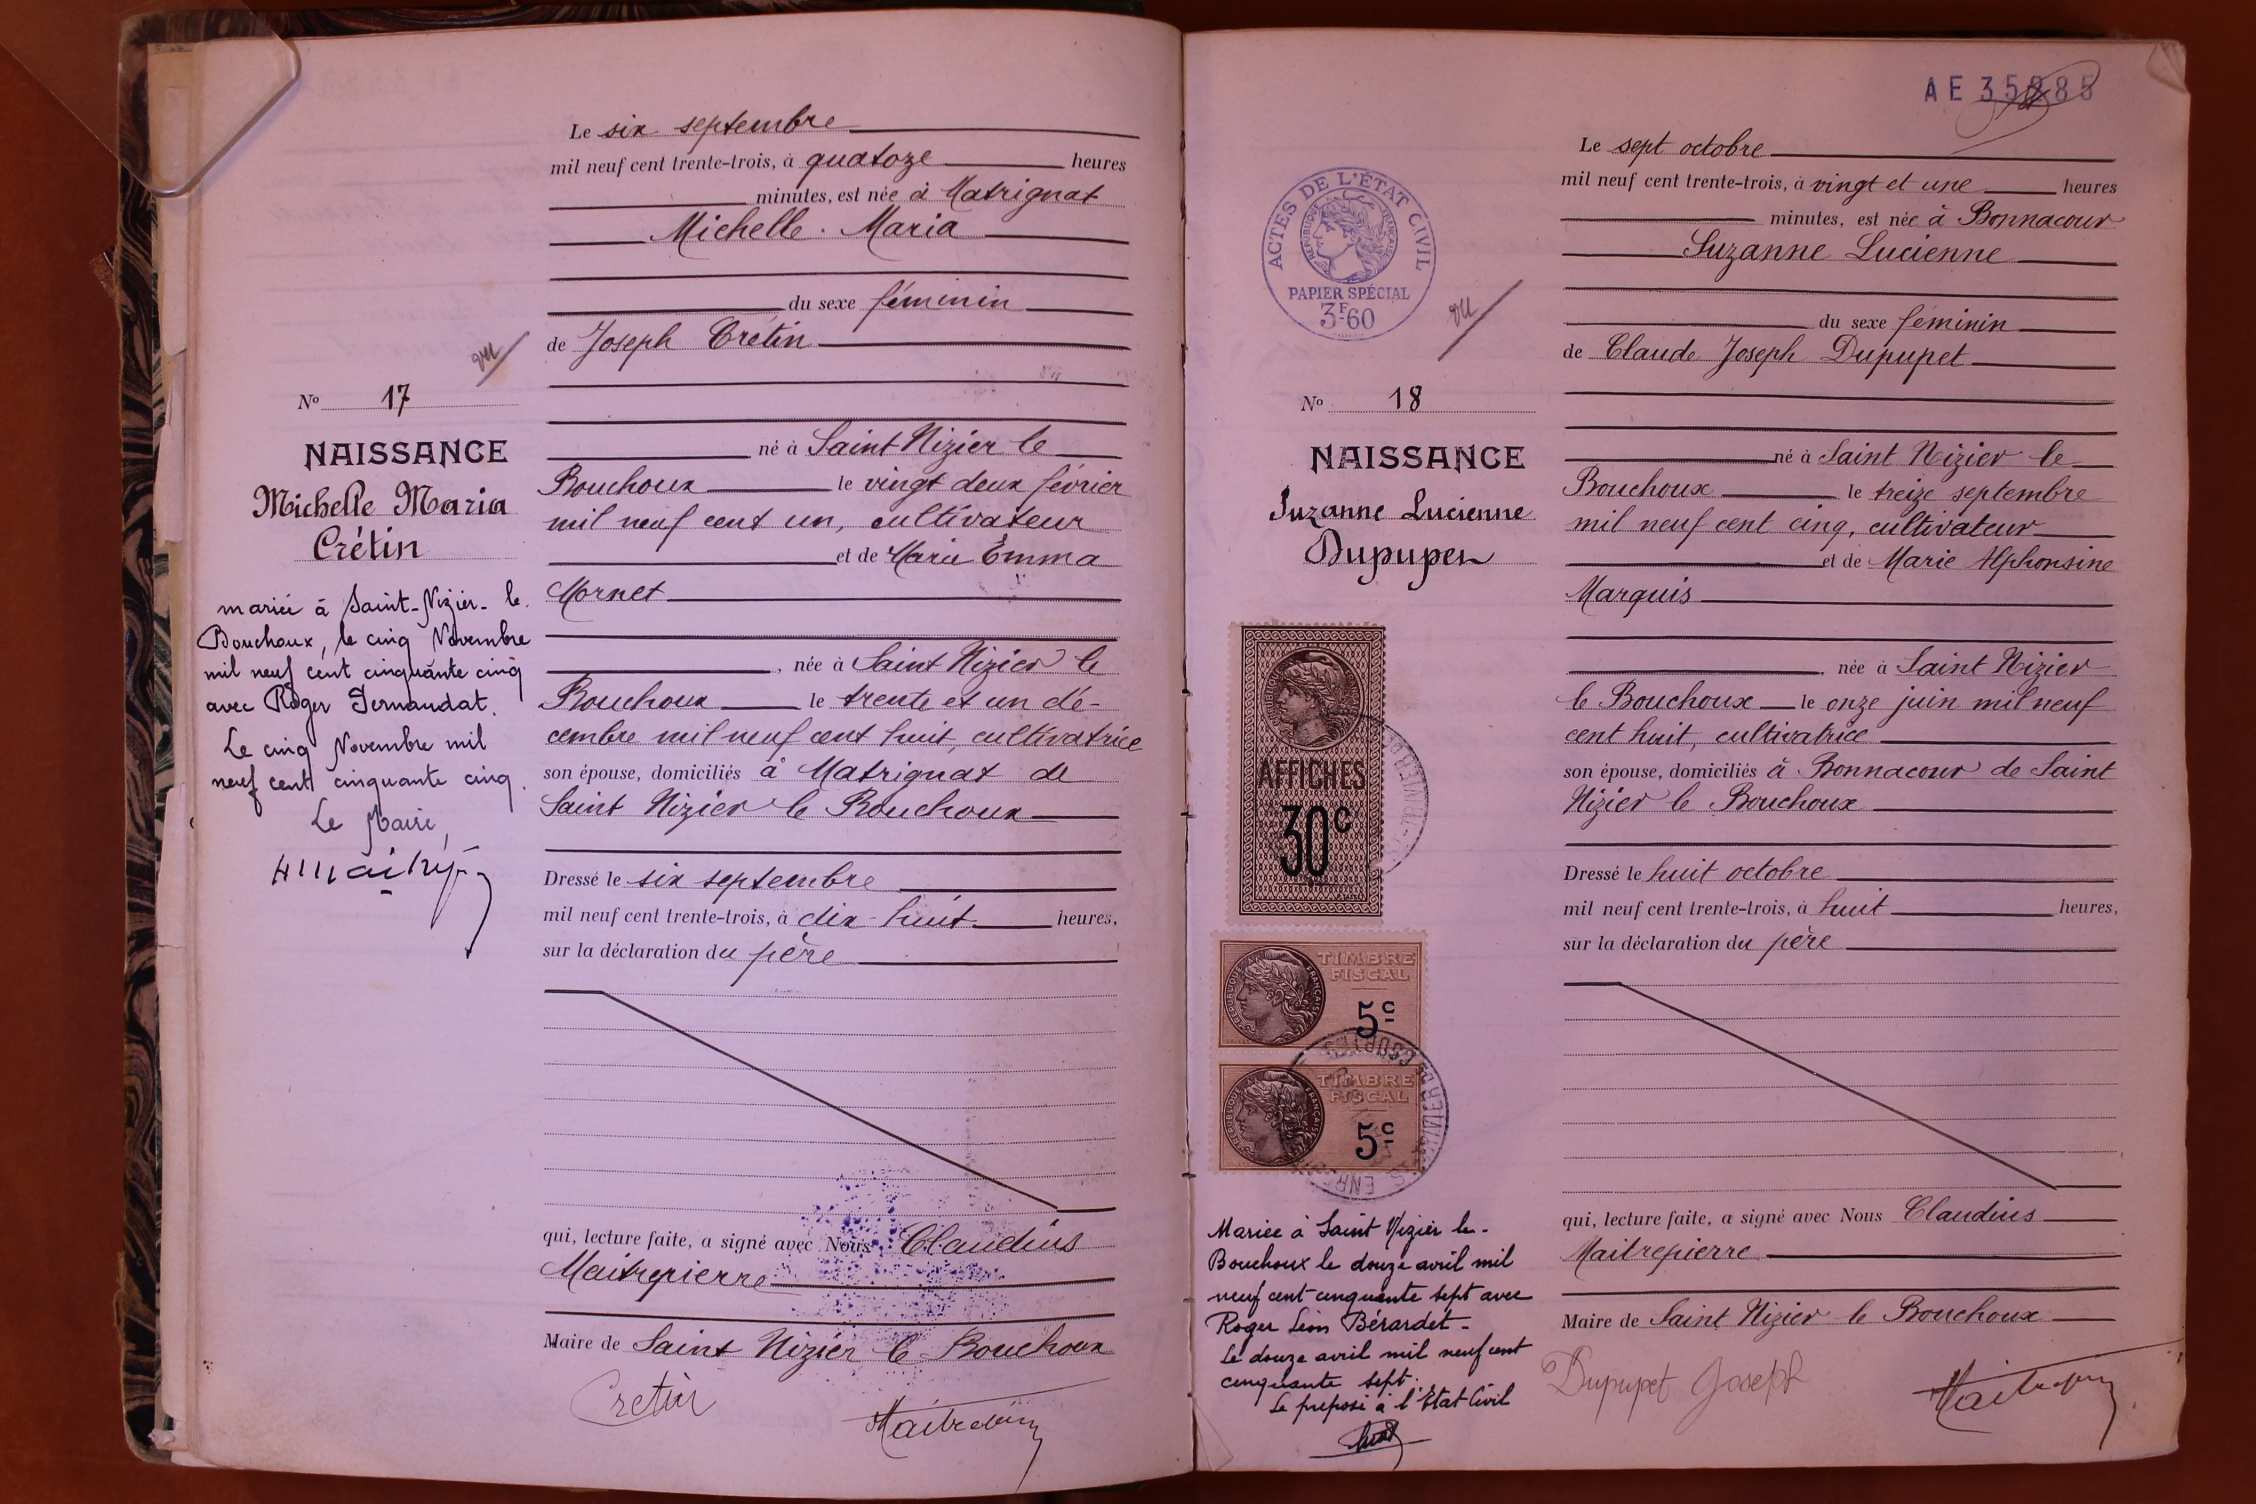 Le six septembre
mil neuf cent trente-trois, à quatoze heures
minutes, est née à Matrignat
Michelle Maria
du sexe féminin
de Joseph Crétin
vu
N° 17
NAISSANCE
Michelle Maria
Crétin
né à Saint Nizier le
Bouchoux le vingt deux février
mil neuf cent un, cultivateur
et de Marie Emma
Mornet
née à Saint Nizier le
Bouchoux le trente et un dé-
cembre mil neuf cent huit, cultivatrice
son épouse, domiciliés à Matrignat de
Saint Nizier le Bouchoux
mariée à Saint-Nizier-le
Bouchoux, le cinq Novembre
mil neuf cent cinquante cinq
avec Roger
Le cinq Novembre mil
neuf cent cinquante cinq.
Le Maire,
Dressé le six septembre
mil neuf cent trente-trois, à dix-huit heures,
sur la déclaration du père
qui, lecture faite, a signé avec Nous Claudius
Maitrepierre
Maire de Saint Nizier le Bouchoux
Cretin
AE
Le sept octobre
mil neuf cent trente-trois, à vingt et une heures
minutes, est née à Bonnacour
Suzanne Lucienne
du sexe féminin
de Claude Joseph Dupupet
ACTES DE L'ÉTAT CIVIL
RÉPUBLIQUE FRANÇAISE
PAPIER SPÉCIAL
3F60
vu
N° 18
NAISSANCE
Suzanne Lucienne
Dupupet
né à Saint Nizier le
Bouchoux le treize septembre
mil neuf cent cinq, cultivateur
et de Marie Alphonsine
Marquis
née à Saint Nizier
le Bouchoux le onze juin mil neuf
cent huit, cultivatrice
son épouse, domiciliés à Bonnacour de Saint
Nizier le Bouchoux
AFFICHES
30c
TIMBRE
FISCAL
5c
TIMBRE
FISCAL
5c
Dressé le huit octobre
mil neuf cent trente-trois, à huit heures,
sur la déclaration du père
qui, lecture faite, a signé avec Nous Claudius
Maitrepierre
Maire de Saint Nizier le Bouchoux
Mariée à Saint Nizier le-
Bouchoux le douze avril mil
neuf cent cinquante sept avec
Roger Léon Bérardet-
Le douze avril mil neuf cent
cinquante sept.
Le préposé à l'Etat Civil
Dupupet Joseph